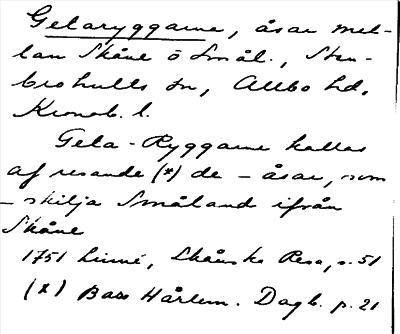 Getaryggarne, åsar mel-
lan Skåne o Smål., Sten-
brohults sn, Allbo hd,
Kronob. l.
Geta-Ryggarne kallas
af resande (*) de - åsar, som
- skilja Småland ifrån
Skåne
1751 Linné, Skånska Resa, s. 51
(*) Bass Hårlem. Dagb. p. 21